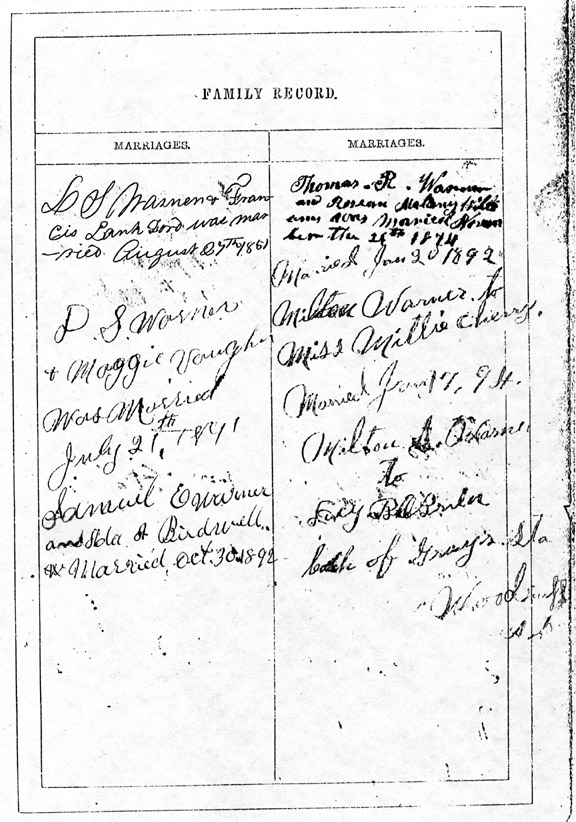 FAMILY RECORD.
MARRIAGES.
D S Warner & Fran
cis Lankford was mar
ried August 27th 1851
D. S. Warner
& Maggie Vaughn
Was Married
July 21th, 1891
Samuel E Warner
and Ida A Birdwell.
Married Oct 30 1892
MARRIAGES.
Thomas. R. Warner
and Rosean Malany
was Married Novem
ber the 26th 1874
Married Jan 20 1892
Milton Warner to
Miss Millie Cherry.
Married Jan 17, 94.
Milton Warner
To
both of Grays Sta
Woodruff